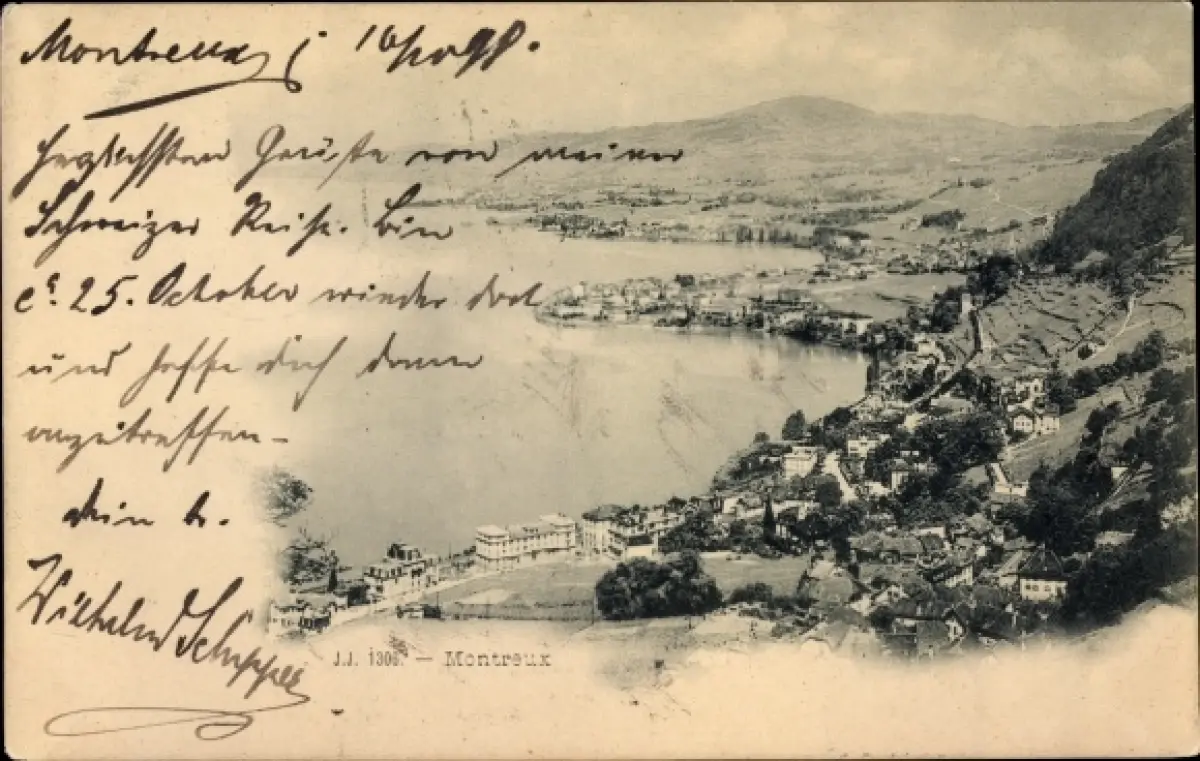 Montreux, 16/10 98.
Herzlichsten Gruß von meiner
Schweizer Reise. Bin
ca. 25. October wieder dort
und hoffe dich dann
anzutreffen –
Dein b.
Wilhelm
J.J. 1306. – Montreux